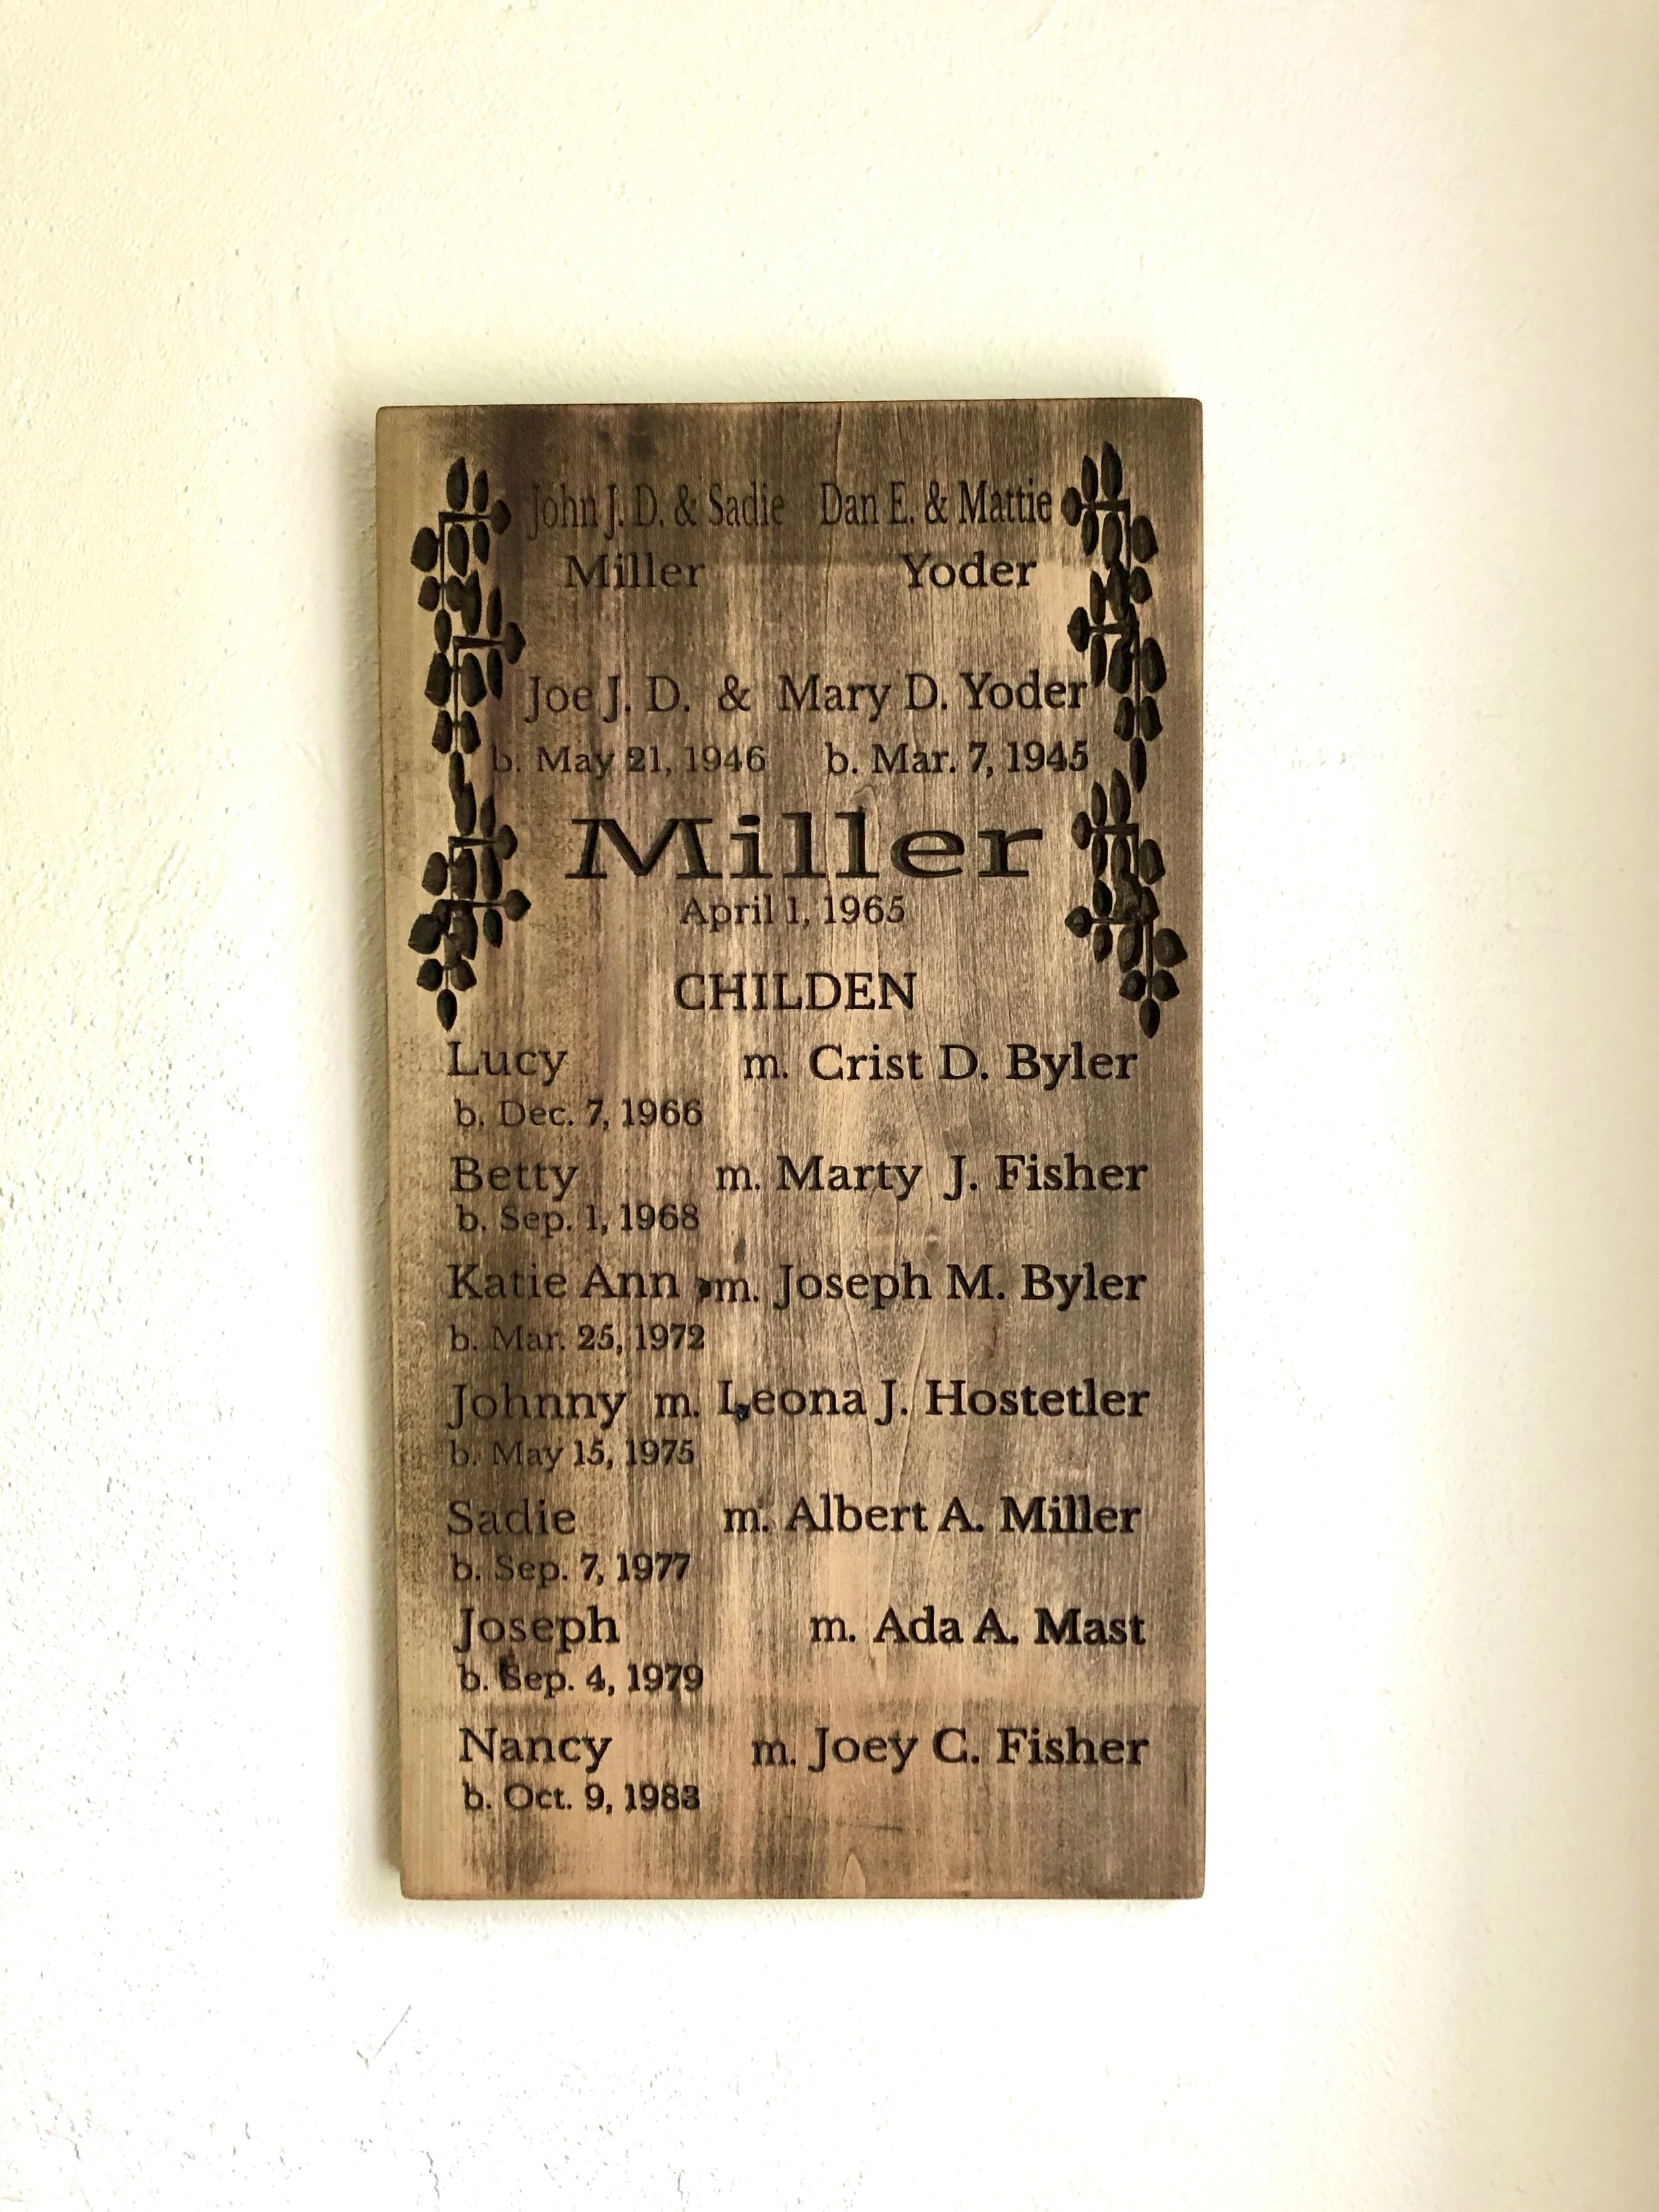 John J. D. & Sadie Dan E. & Mattie
Miller Yoder
Joe J. D. & Mary D. Yoder
b. May 21, 1946 b. Mar. 7, 1945
Miller
April 1, 1965
CHILDEN
Lucy m. Crist D. Byler
b. Dec. 7, 1966
Betty m. Marty J. Fisher
b. Sep. 1, 1968
Katie Ann m. Joseph M. Byler
b. Mar. 25, 1972
Johnny m. Leona J. Hostetler
b. May 15, 1975
Sadie m. Albert A. Miller
b. Sep. 7, 1977
Joseph m. Ada A. Mast
b. Sep. 4, 1979
Nancy m. Joey C. Fisher
b. Oct. 9, 1983